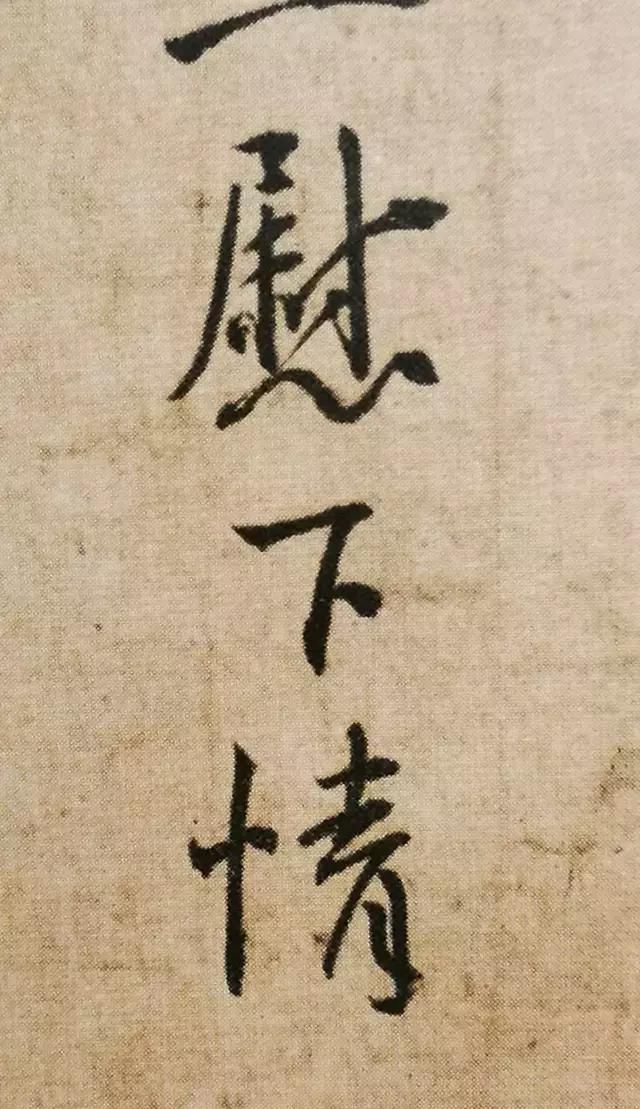 慰下情